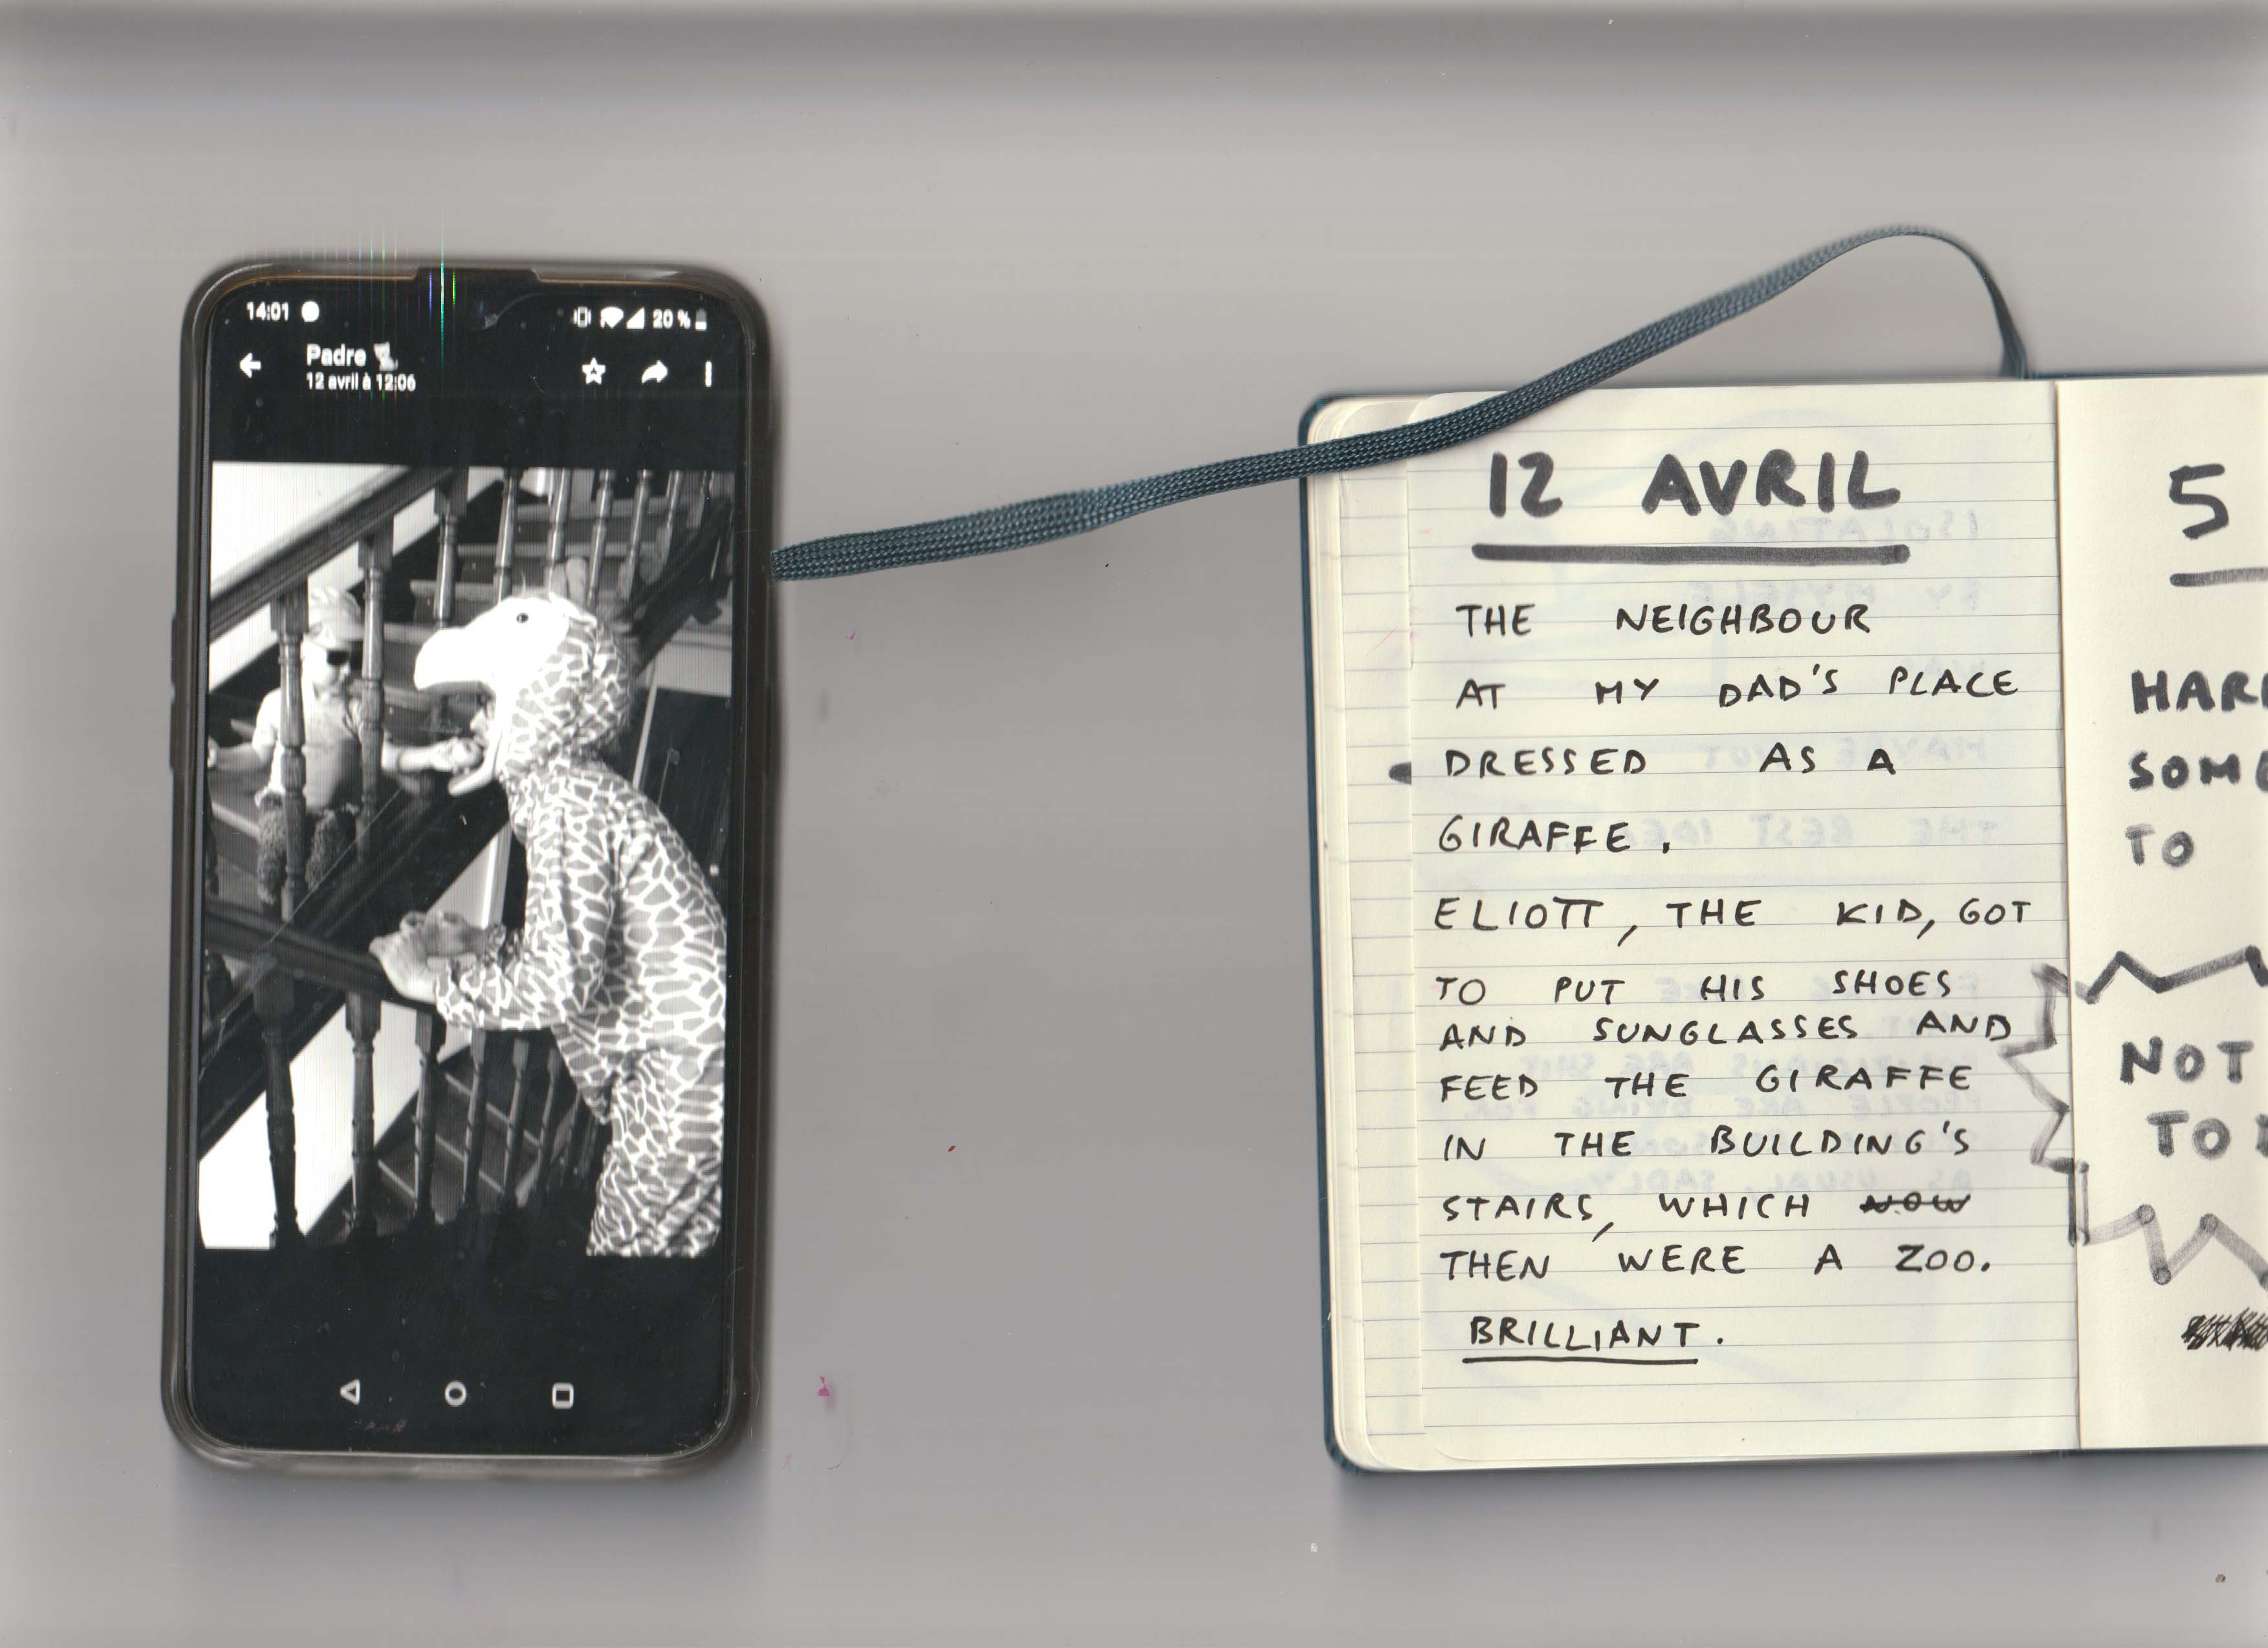 14:01
20 %
Padre
12 avril à 12:06
12 AVRIL
THE NEIGHBOUR
AT MY DAD'S PLACE
DRESSED AS A
GIRAFFE.
ELIOTT, THE KID, GOT
TO PUT HIS SHOES
AND SUNGLASSES AND
FEED THE GIRAFFE
IN THE BUILDING'S
STAIRS, WHICH NOW
THEN WERE A ZOO.
BRILLIANT.
5
TO
NOT
TO